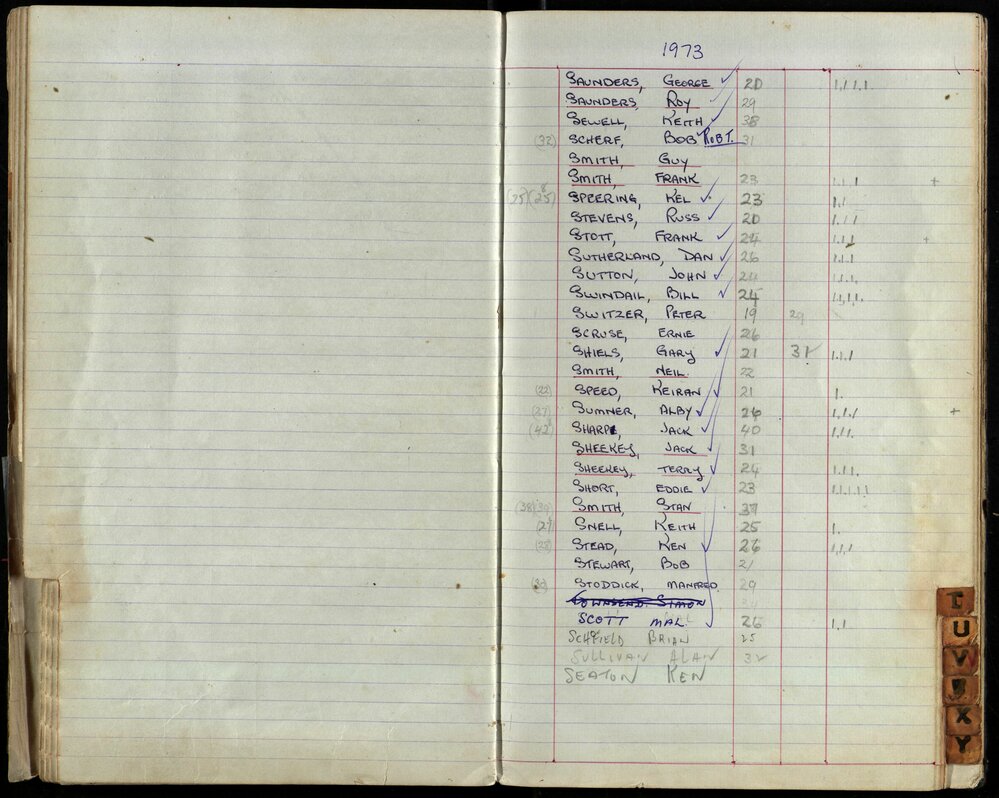 1973
SAUNDERS, GEORGE ✓ 20 1.1.1.1.
SAUNDERS, ROY ✓ 29
SEWELL, KEITH ✓ 38
(32) SCHERF, BOB ROBT. 31
SMITH, GUY
SMITH, FRANK 23 1.1.1 +
SPEERING, KEL ✓ 23 1.1
STEVENS, RUSS ✓ 20 1.1.1
STOTT, FRANK ✓ 24 1.1.1 +
SUTHERLAND, DAN ✓ 26 1.1.1
SUTTON, JOHN ✓ 24 1.1.1.
SWINDAIL, BILL ✓ 24 1.1.1.1.
SWITZER, PETER 19 29
SCRUSE, ERNIE 26
SHIELS, GARY ✓ 21 31 1.1.1
SMITH, NEIL 22
(22) SPEED, KEIRAN ✓ 21 1.
(27) SUMNER, ALBY ✓ 26 1.1.1 +
(42) SHARPE, JACK ✓ 40 1.1.1.
SHEEKEY, JACK ✓ 31
SHEEKEY, TERRY ✓ 24 1.1.1.
SHORT, EDDIE ✓ 23 1.1.1.1.1
SMITH, STAN 37
(27) SNELL, KEITH 25 1.
STEAD, KEN ✓ 26 1.1.1
STEWART, BOB 21
STODDICK, MANFRED 29
TOWNSEND SIMON
SCOTT MAL. ✓ 26 1.1
SCHOFIELD BRIAN 25
SULLIVAN ALAN 32
SEATON KEN
T
U
V
X
Y